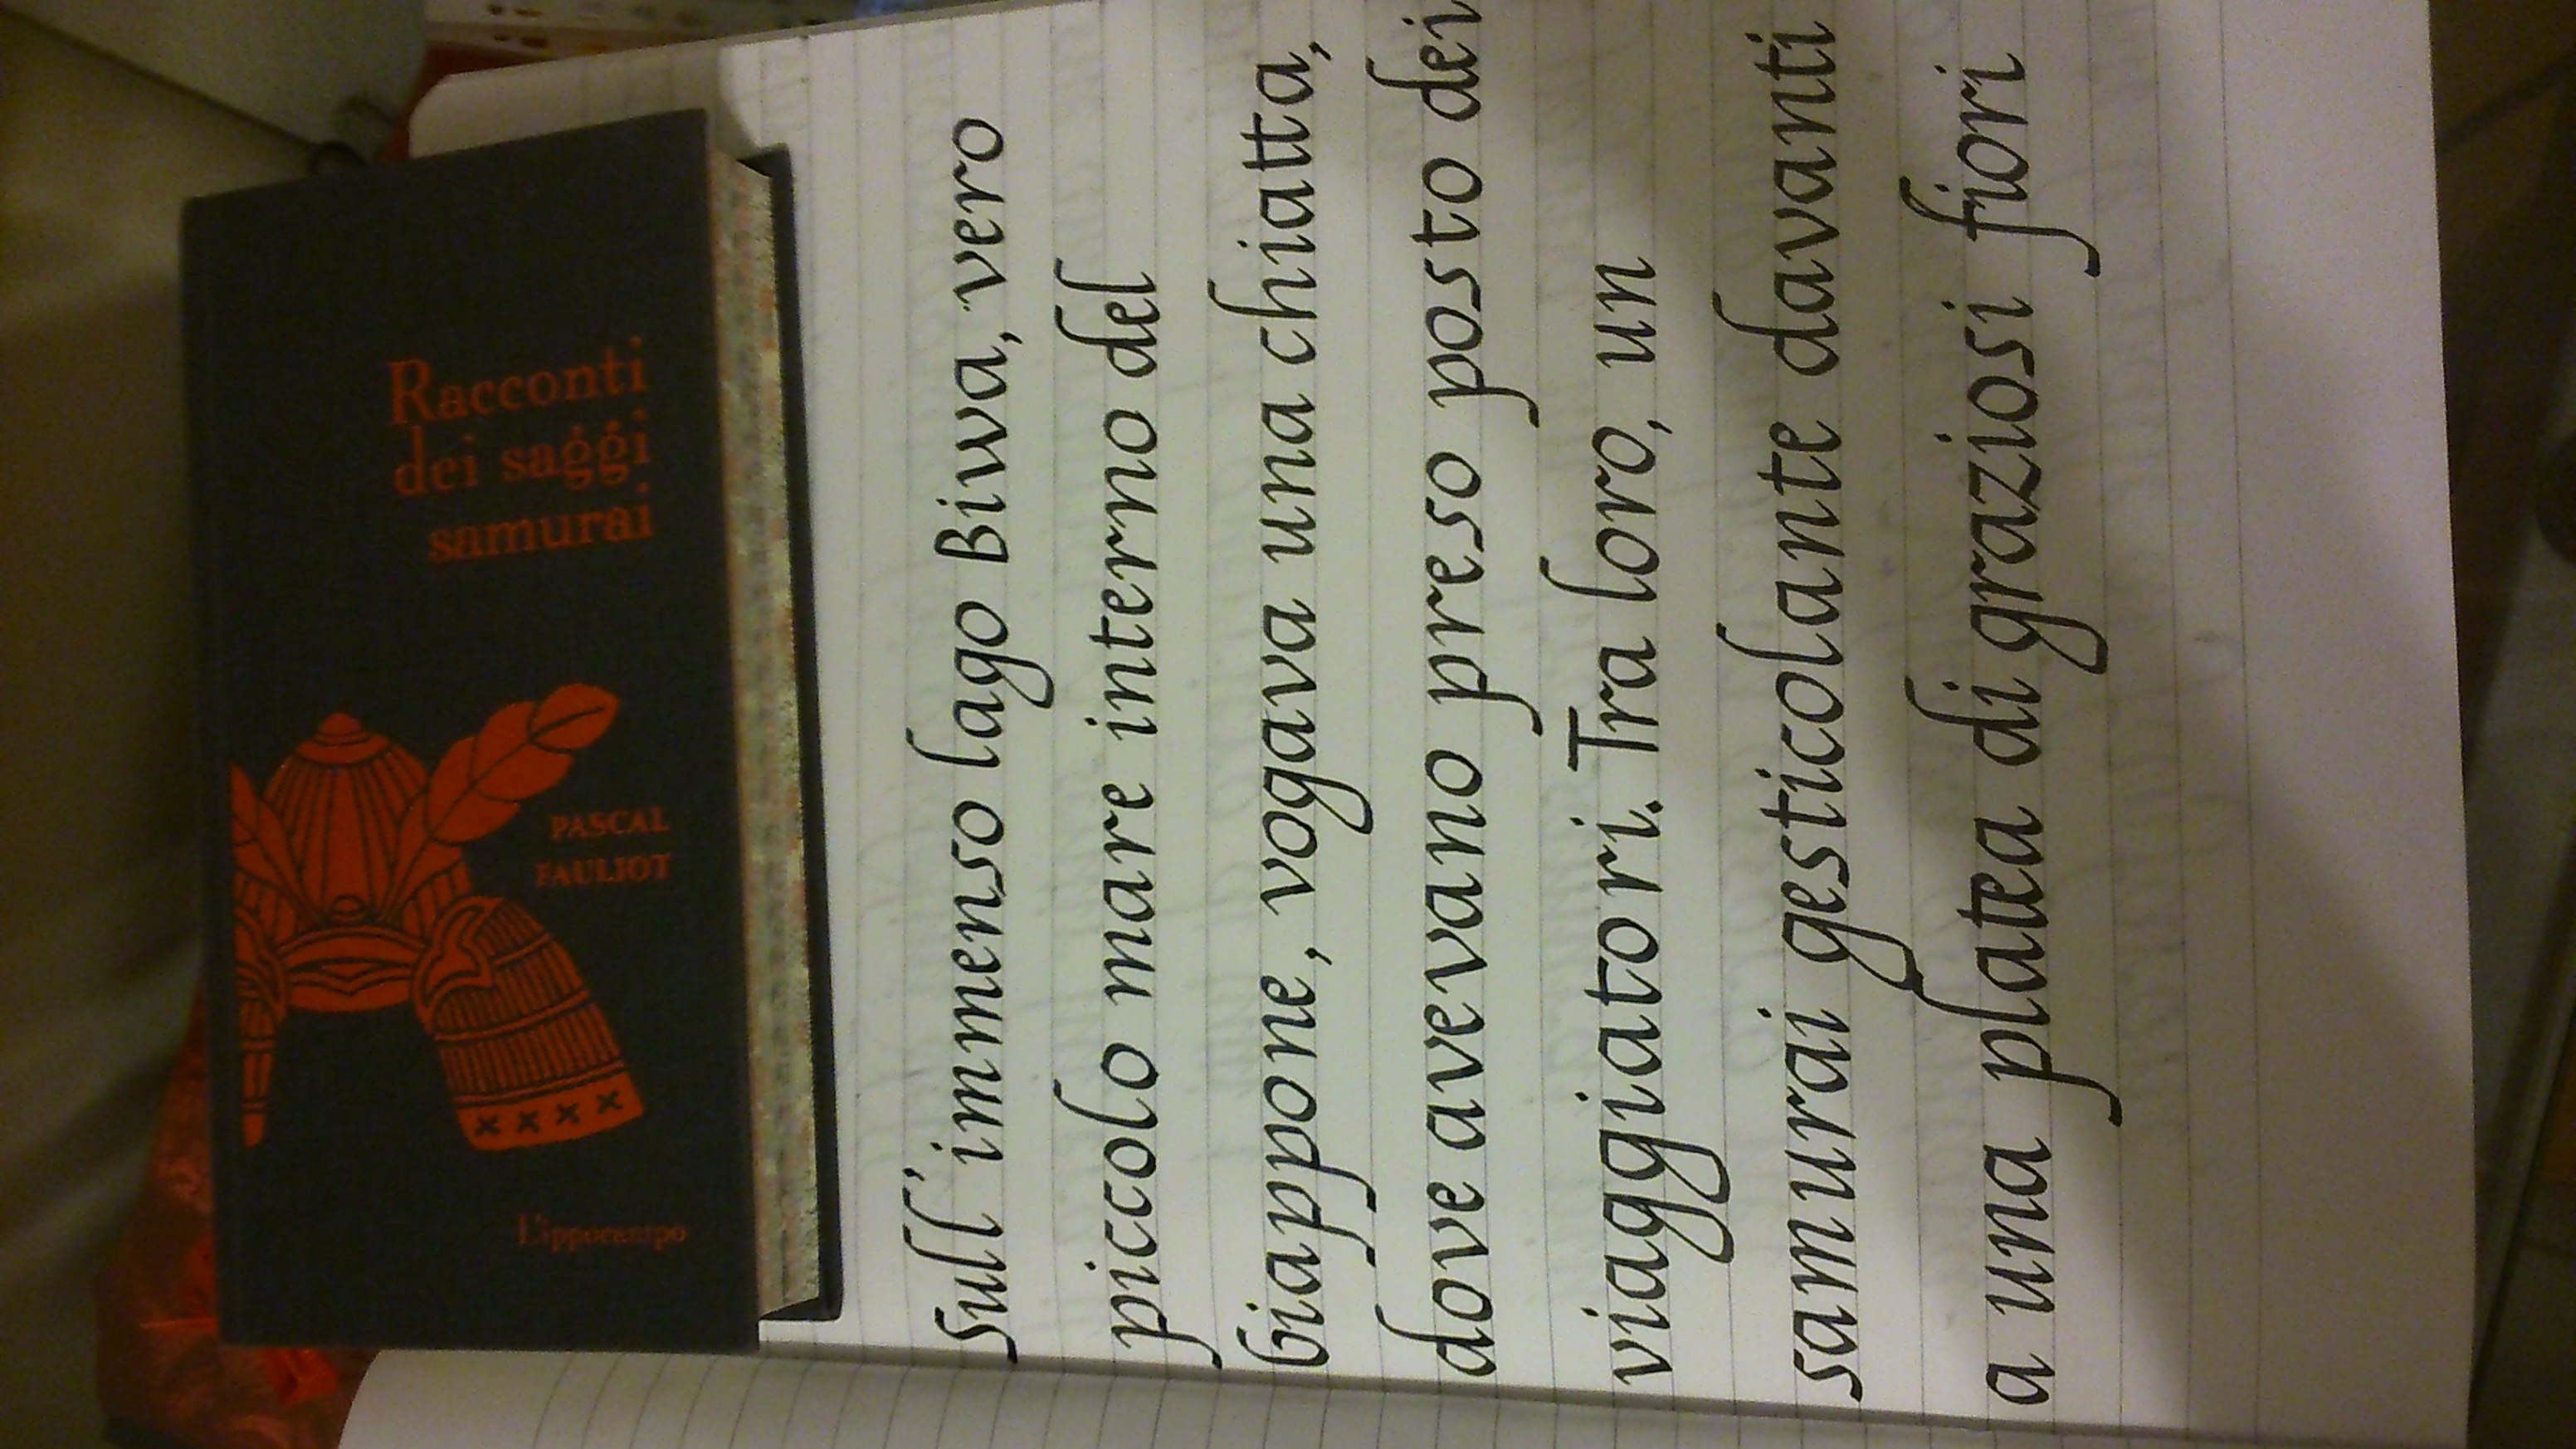 Racconti
dei saggi
samurai
PASCAL
FAULIOT
L'ippocampo
Sull'immenso lago Biwa, vero
piccolo mare interno del
Giappone, vogava una chiatta,
dove avevano preso posto dei
viaggiatori. Tra loro, un
samurai gesticolante davanti
a una platea di graziosi fiori